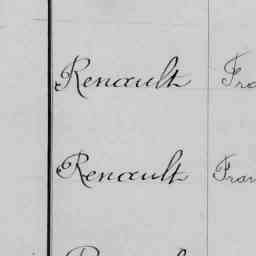 Renault Fra
Renault Fran